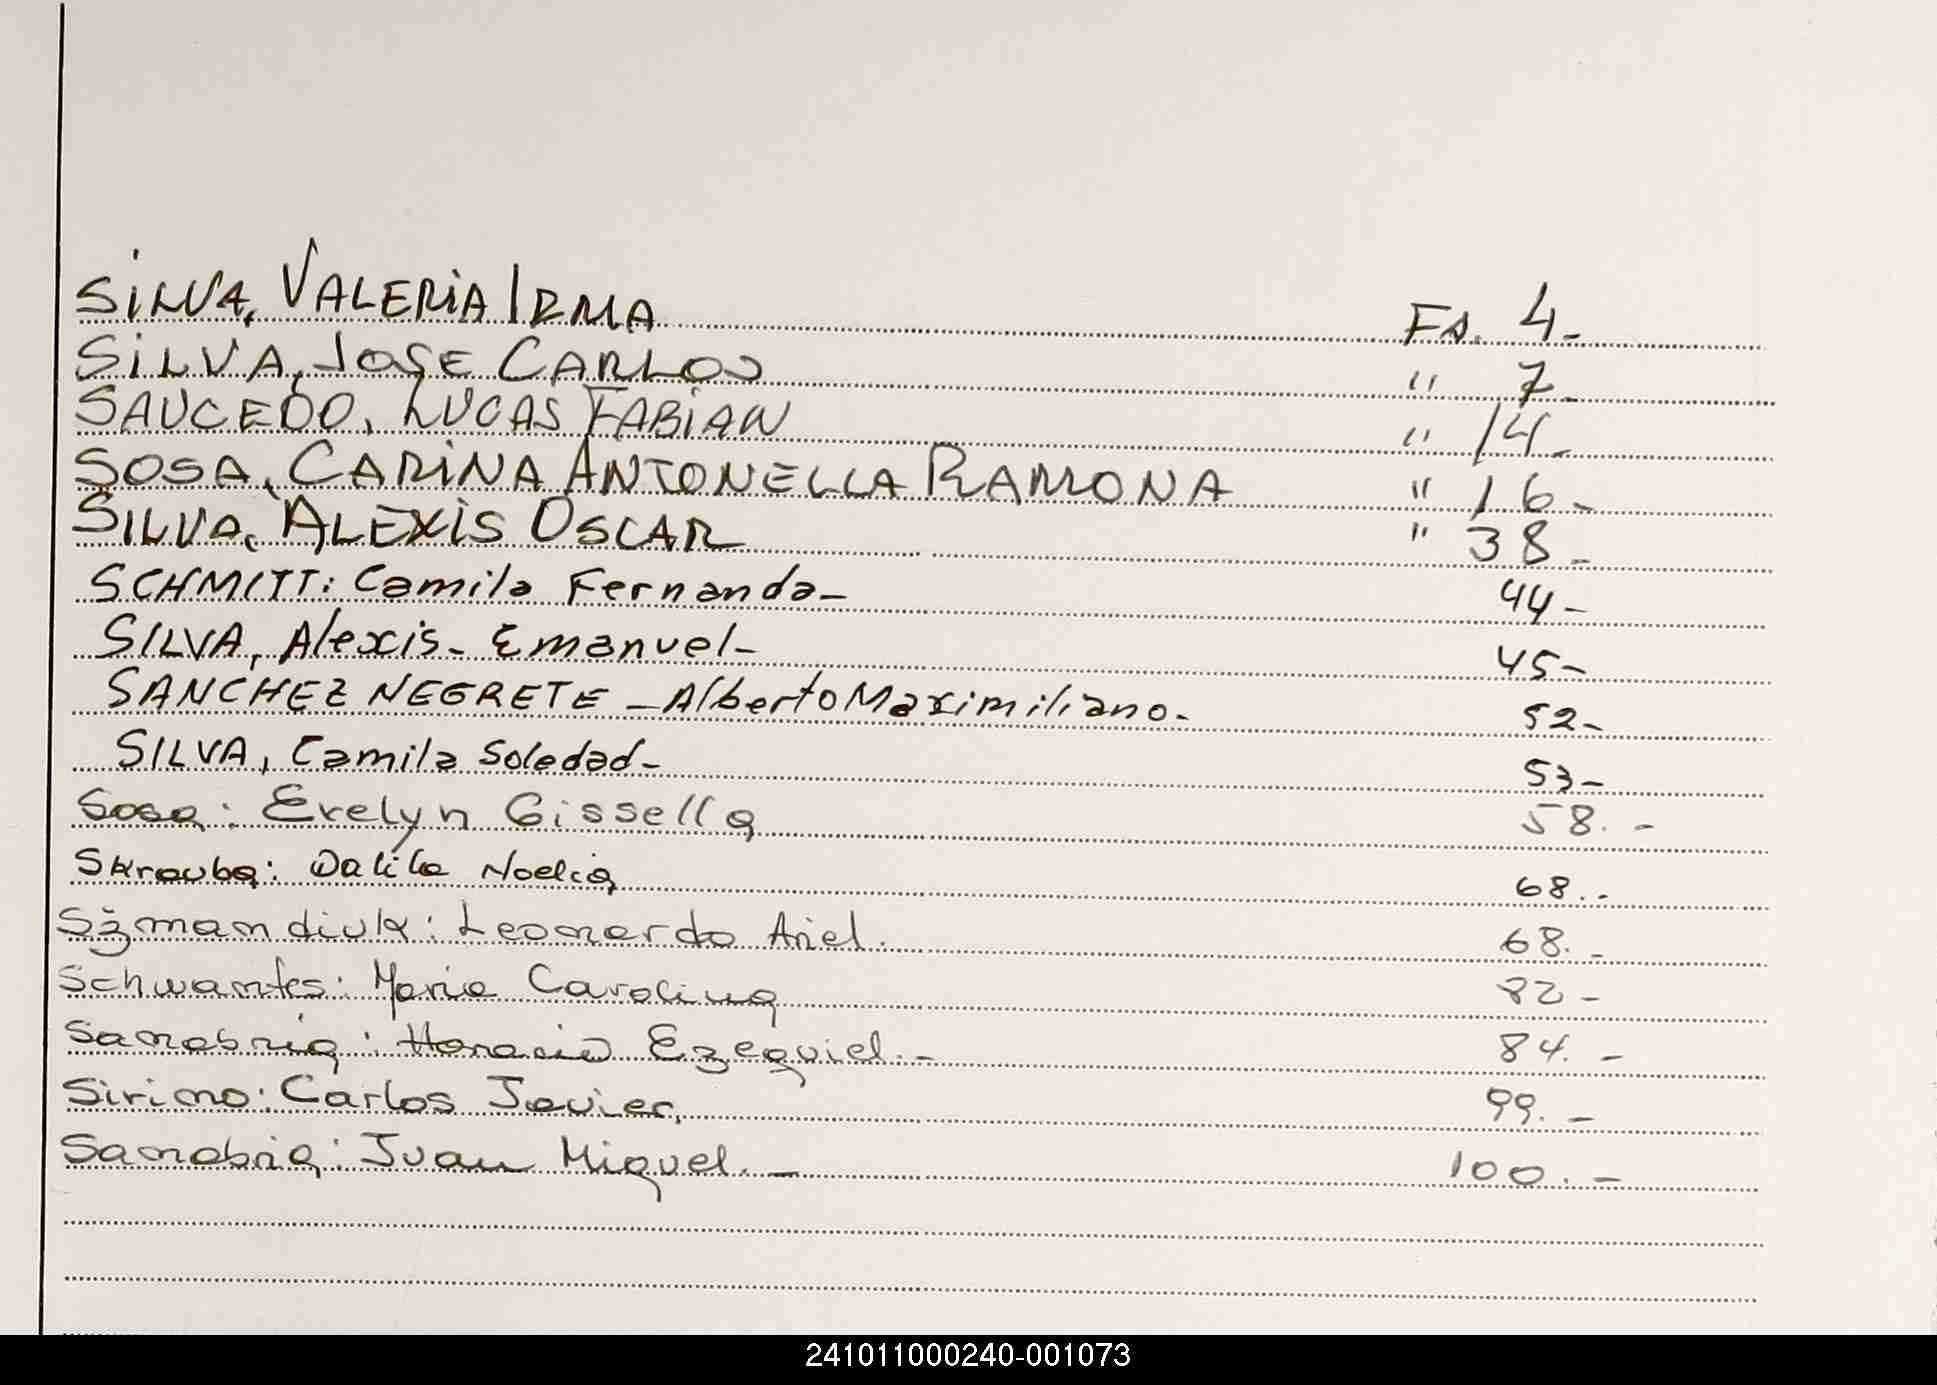 SILVA, VALERIA IRMA Fs. 4.-
SILVA, JOSE CARLOS " 7.-
SAUCEDO, LUCAS FABIAN " 14.-
SOSA, CARINA ANTONELLA RAMONA " 16.-
SILVA, ALEXIS OSCAR " 38.-
SCHMITT: Camila Fernanda- 44-
SILVA, Alexis- Emanuel- 45-
SANCHEZ NEGRETE - Alberto Maximiliano- 52-
SILVA, Camila Soledad- 53-
Sosa: Evelyn Gissella 58.-
Skrauba: Dalila Noelia 68.-
Szmandiuk: Leonardo Ariel. 68.-
Schwantes: Maria Carolina 82-
Sanabria: Horacio Ezequiel.- 84.-
Sirimo: Carlos Javier. 99.-
Sanabria: Juan Miguel.- 100.-
241011000240-001073